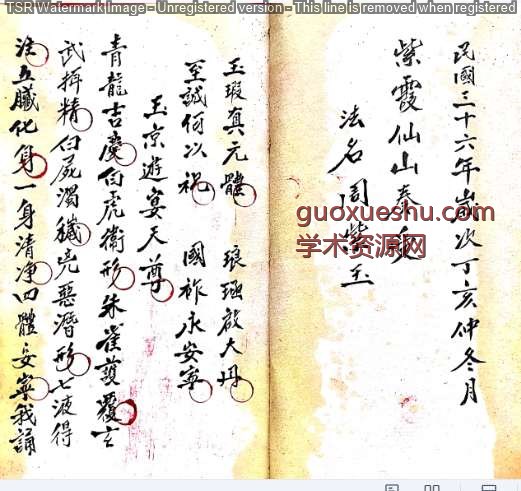 TSR Watermark Image - Unregistered version - This line is removed when registered
民國三十六年歲次丁亥仲冬月
紫霞仙山奉
法名周紫玉
guoxueshu.com
学术资源网
玉瑕真元體 琅函啟大丹
至誠何以祝 國祚永安寧
玉京遊宴天尊
青龍吉慶白虎衛形朱雀護覆玄
武抨精白屍濁穢兇惡潛形七液得
注五臟化身一身清净四體安寧我誦